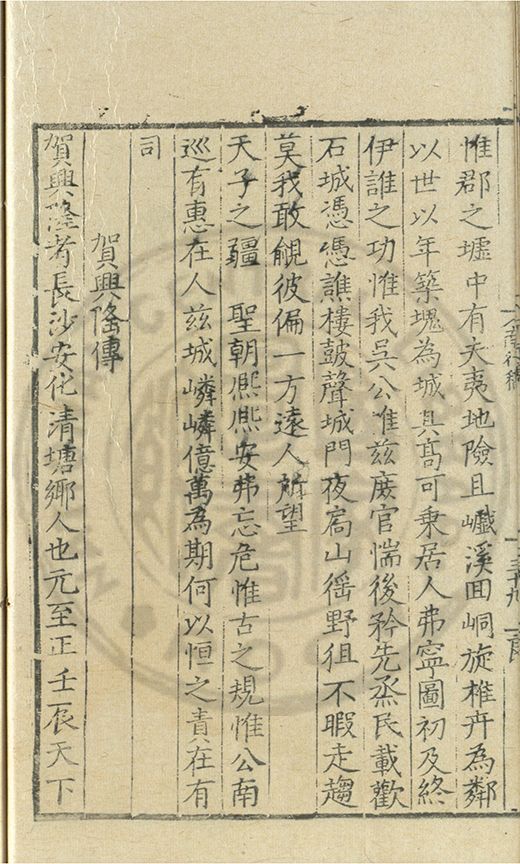 惟郡之墟中有夫夷地險且巇溪回峒旋椎卉為鄰
以世以年築塊為城具高可乗居人弗寜圖初及終
伊誰之功惟我吳公惟兹厥官惴後矜先烝民載歡
石城憑憑譙樓鼓聲城門夜扃山徭野徂不暇走趨
莫我敢覦彼偏一方遠人所望
天子之疆 聖朝熈熈安弗忘危惟古之規惟公南
巡有惠在人兹城嶙嶙億萬為期何以恒之責在有
司
賀興隆傳
賀興隆者長沙安化清塘鄉人也元至正壬辰天下